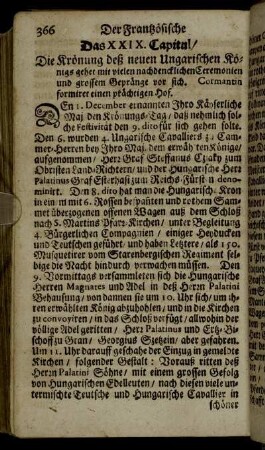 366 Der Frantzösische
Das XXIX. Capitul/
Die Krönung deß neuen Ungarischen Kö-
nigs gehet mit vielen nachdencklichen Ceremonien
und grossem Gepränge vor sich. Cormantin
formiret einen prächtigen Hof.
DEn 1. December ernannten Ihro Käyserliche
Maj. den Krönungs-Tag/ daß nehmlich sol-
che Festivität den 9. dito für sich gehen solte.
Den 6. wurden 4. Ungarische Cavalliers zu Cam-
mer-Herren bey Ihro Maj. dem erwähnten Könige/
aufgenommen/ Herr Graf Steffanus Czaky zum
Obristen Land-Richtern/ und der Hungarische Herr
Palatinus Graf Esterhasi zum Reichs-Fürsten deno-
miniret. Den 8. dito hat man die Hungarisch. Kron
in einem mit 6. Rossen bespañten und rothem Sam-
met überzogenen offenen Wagen auß dem Schloß
nach S. Martins Pfarr-Kirchen/ unter Begleitung
4. Bürgerlichen Compagnien/ einiger Heyducken
und Teutschen geführt/ und haben Letztere/ als 150.
Musquetirer vom Starenbergischen Regiment sel-
bige die Nacht hindurch verwachen müssen. Den
9. Vormittags versammleten sich die Hungarische
Herren Magnates und Adel in deß Herrn Palatini
Behausung/ von dannen sie um 10. Uhr sich/ um ih-
ren erwählten König abzuholen/ und in die Kirchen
zu convoyiren/ in das Schloß verfügt/ allwohin der
völlige Adel geritten/ Herr Palatinus und Ertz-Bi-
schoff zu Gran/ Georgius Szetzein/ aber gefahren.
Um 11. Uhr darauff geschahe der Einzug in gemeldte
Kirchen/ folgender Gestalt: Vorauß ritten deß
Herrn Palatini Söhne/ mit einem grossen Gefolg
von Hungarischen Edelleuten/ nach diesen viele un-
termischte Teutsche und Hungarische Cavallier in
schöner